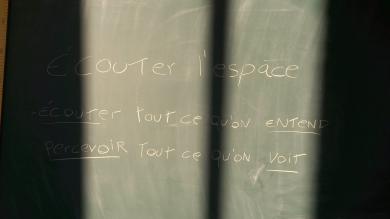 Écouter l'espace
- Écouter tout ce qu'on entend
Percevoir tout ce qu'on voit